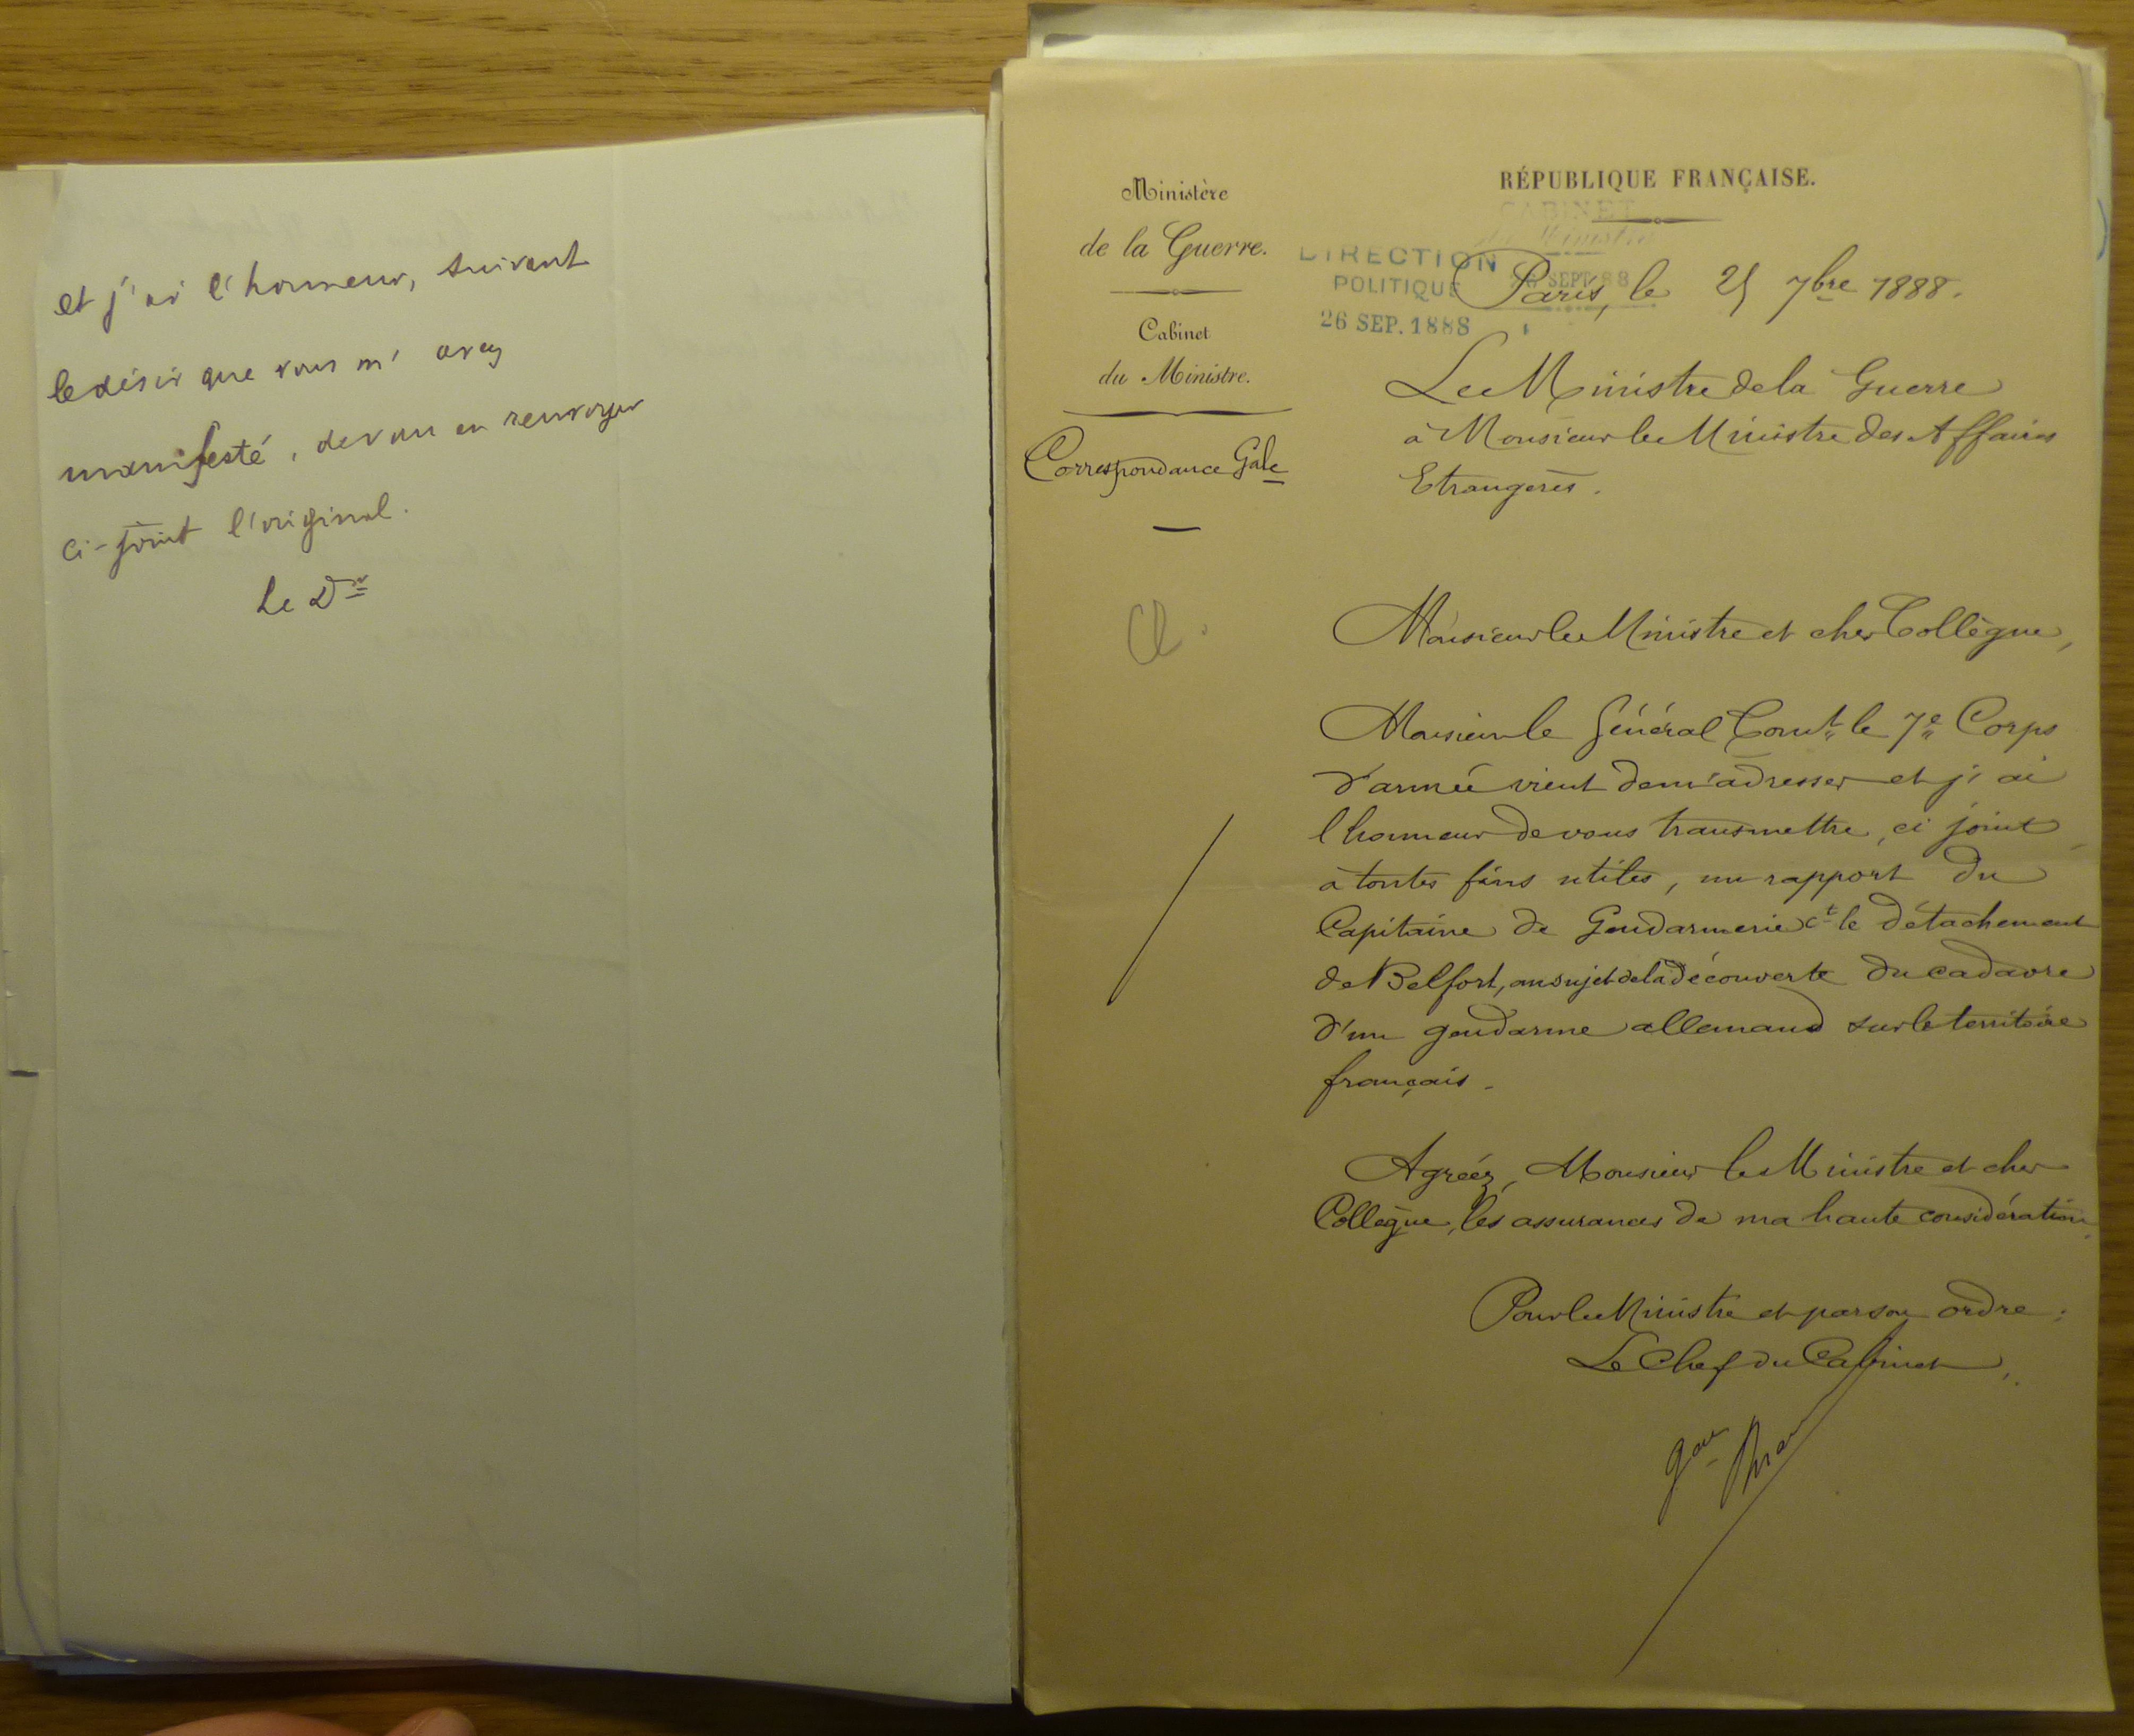 et j'ai l'honneur, suivant
le désir que vous m'avez
manifesté, de vous en renvoyer
ci-joint l'original.
Le Dr
RÉPUBLIQUE FRANÇAISE.
Ministère
de la Guerre.
Cabinet
du Ministre.
Correspondance Gale
CABINET
du Ministre
SEPT 88
DIRECTION
POLITIQUE
26 SEP. 1888
Paris, le 25 7bre 1888.
Le Ministre de la Guerre
à Monsieur le Ministre des Affaires
Etrangères.
Monsieur le Ministre et cher Collègue,
Monsieur le Général Comt le 7e Corps
d'armée vient de m'adresser et j'ai
l'honneur de vous transmettre, ci joint
à toutes fins utiles, un rapport du
Capitaine de Gendarmerie Ct le détachement
de Belfort, au sujet de la découverte du cadavre
d'un gendarme allemand sur le territoire
français.
Agréez, Monsieur le Ministre et cher
Collègue, les assurances de ma haute considération.
Pour le Ministre et par son ordre:
Le Chef du Cabinet,